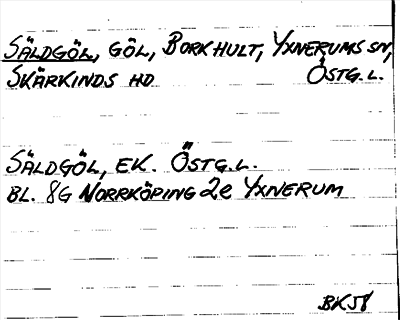 SÄLDGÖL, GÖL, BORKHULT, YXNERUMS SN,
SKÄRKINDS HD ÖSTG.L.
SÄLDGÖL, EK. ÖSTG.L.
BL. 8G NORRKÖPING 2e YXNERUM